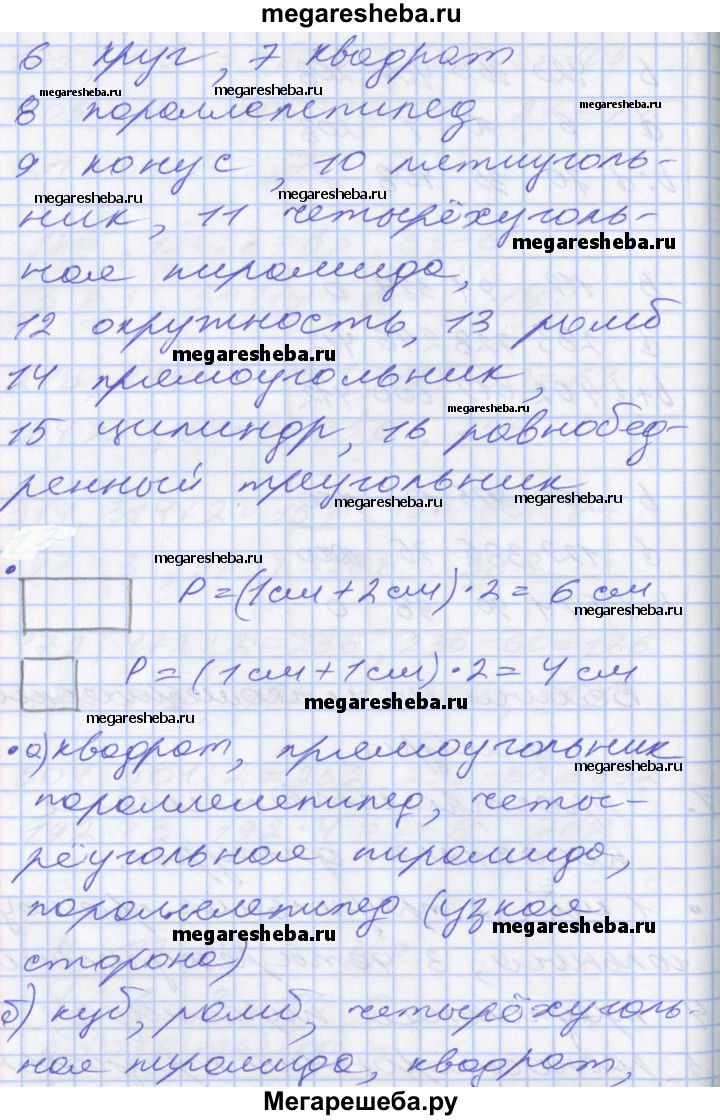 megaresheba.ru
6 круг, 7 квадрат
megaresheba.ru megaresheba.ru
8 параллелепипед megaresheba.ru
9 конус, 10 пятиуголь-
megaresheba.ru megaresheba.ru
ник, 11 четырёхуголь-
megaresheba.ru
ная пирамида,
12 окружность, 13 ромб
megaresheba.ru
14 прямоугольник,
megaresheba.ru
15 цилиндр, 16 равнобед-
ренный треугольник
megaresheba.ru megaresheba.ru
megaresheba.ru
P = (1см + 2см) · 2 = 6 см
megaresheba.ru
P = (1см + 1см) · 2 = 4 см
megaresheba.ru
megaresheba.ru
• а) квадрат, прямоугольник
megaresheba.ru
параллелепипед, четы-
рёугольная пирамида,
параллелепипед (узкая
megaresheba.ru megaresheba.ru
сторона)
б) куб, ромб, четырёхуголь-
ная пирамида, квадрат,
Мегарешеба.ру